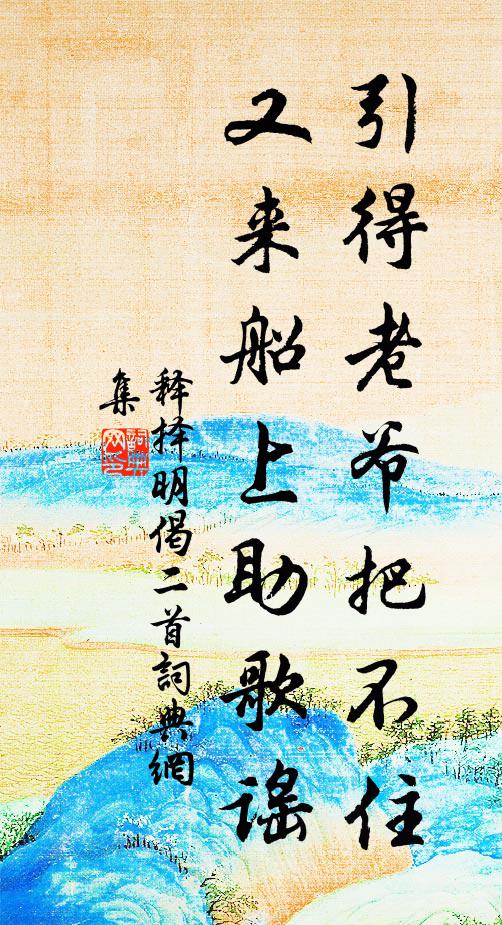 引得老爷把不住
又来船上助歌谣
释择明偈二首詞典網
集